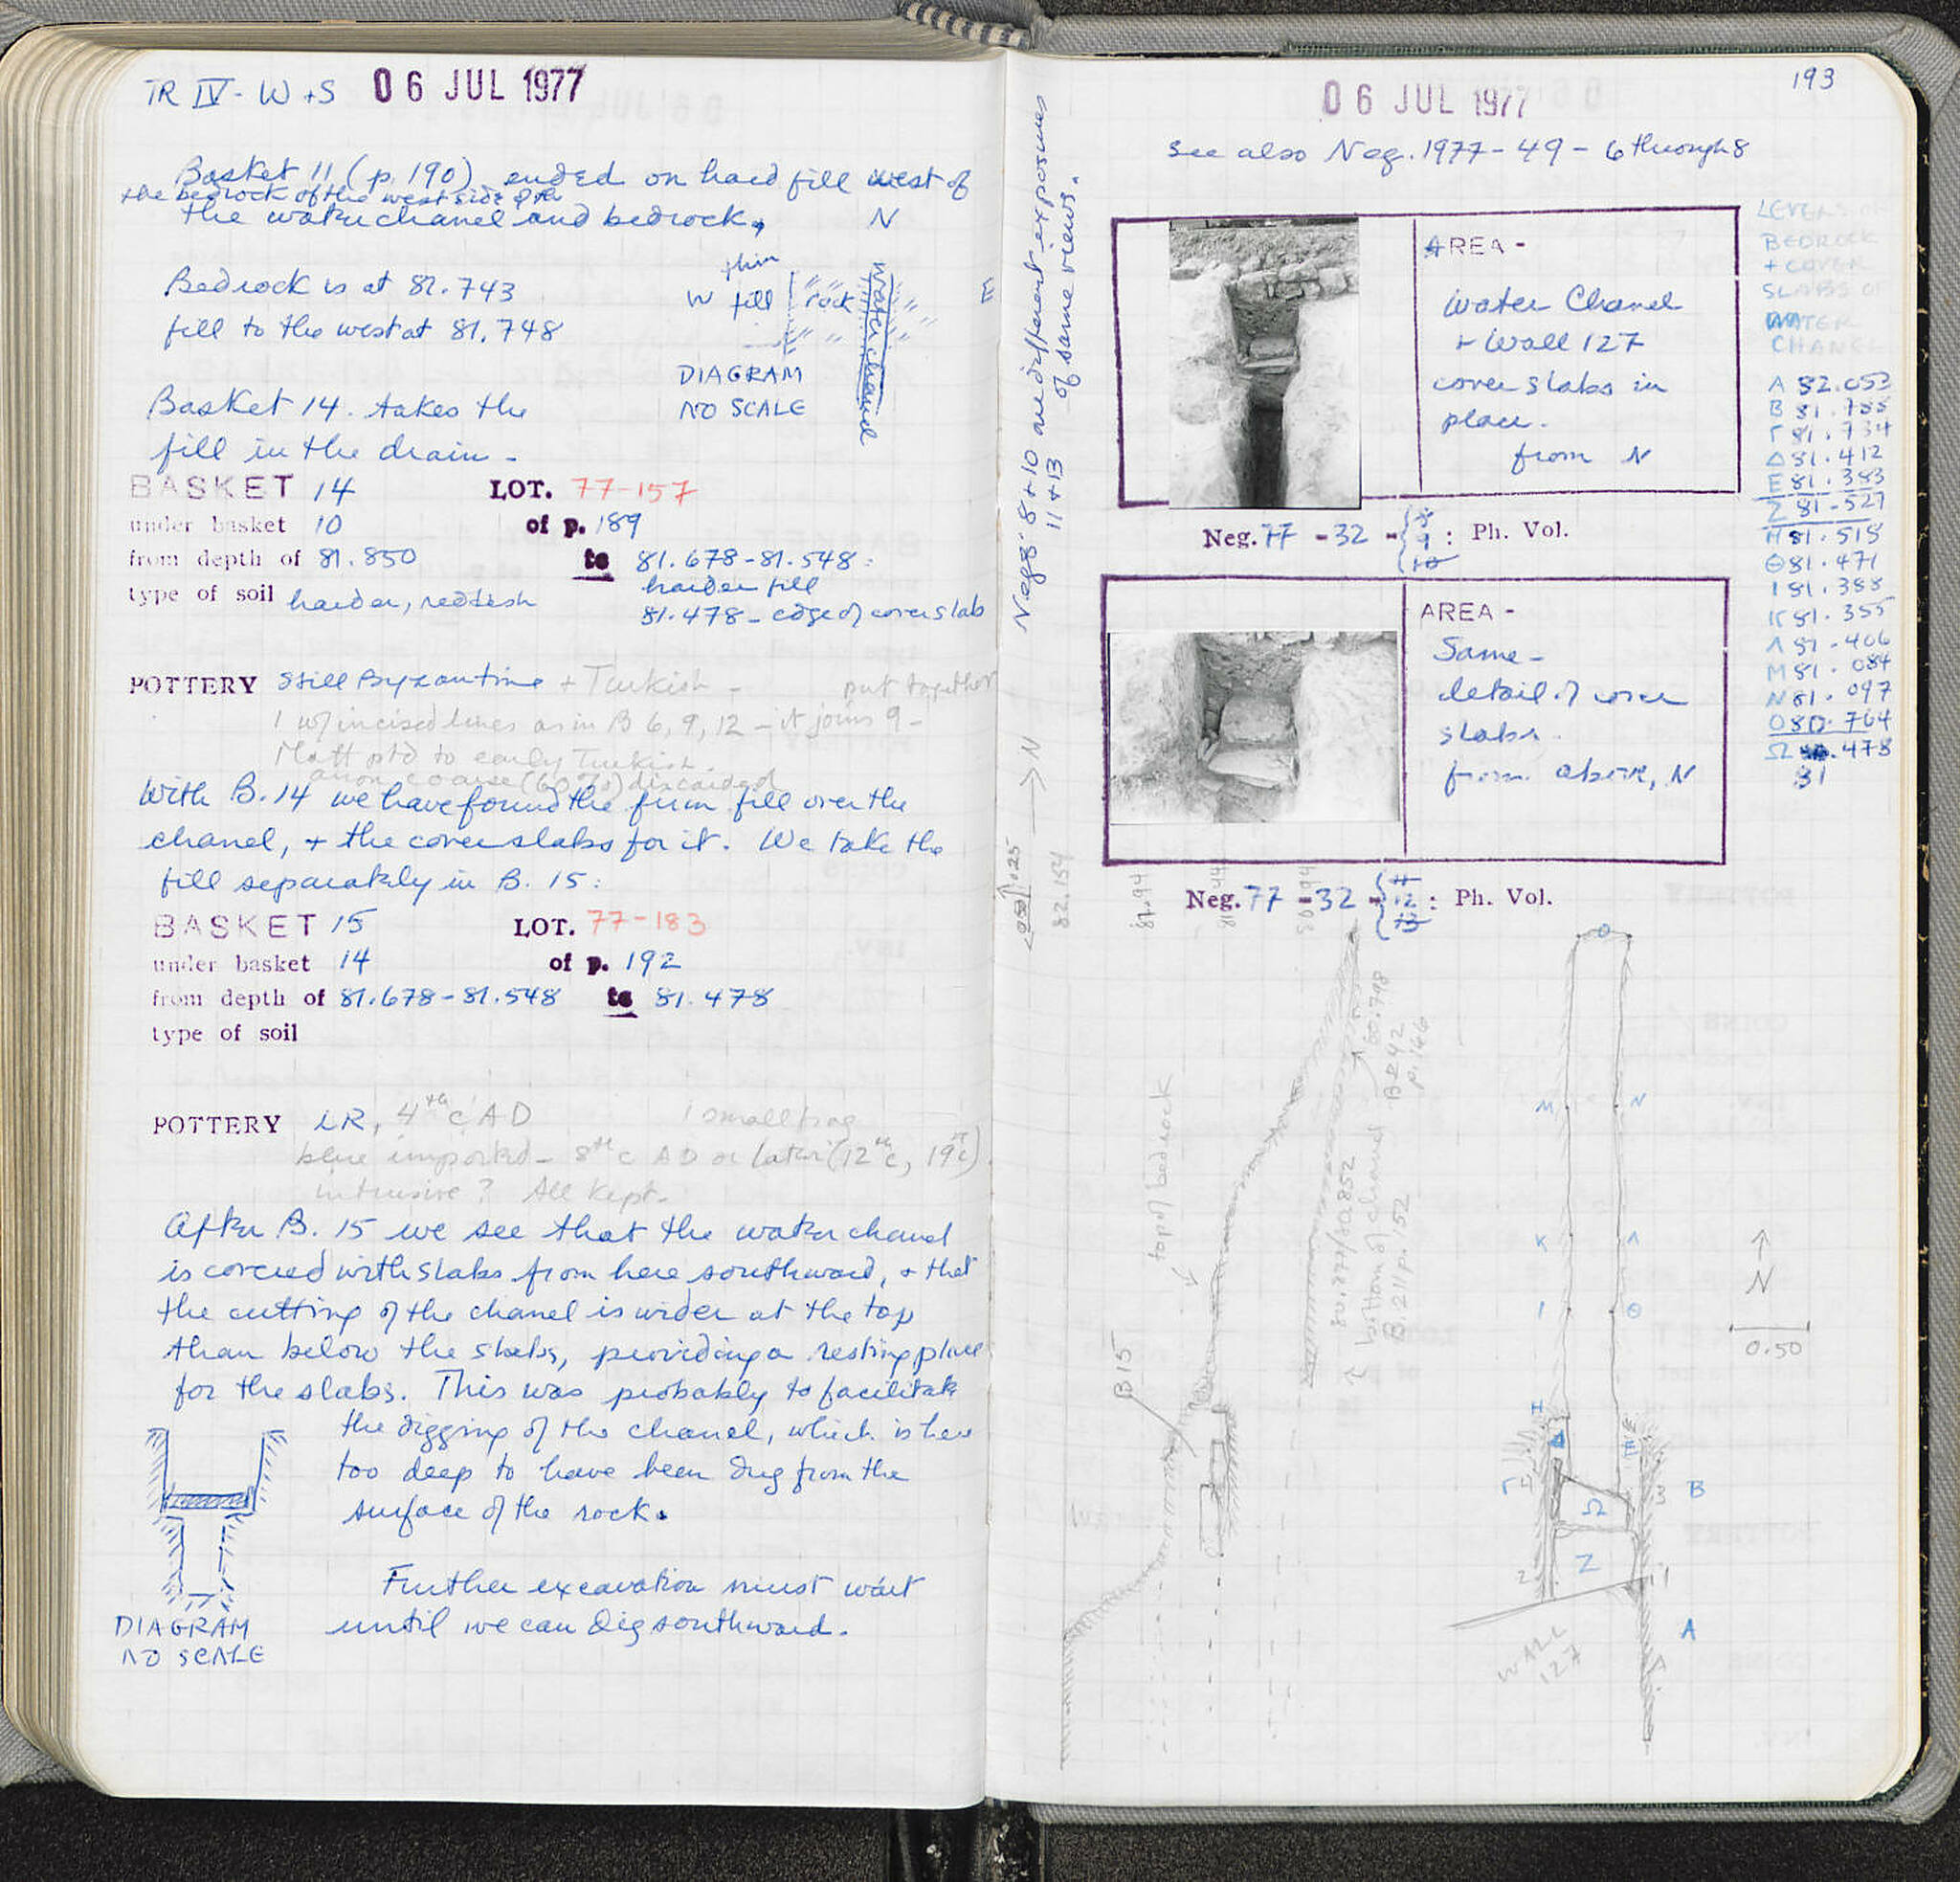 TR IV - W + S 06 JUL 1977
Basket 11 (p. 190) ended on hard fill west of
the bedrock of the west side of the
the water chanel and bedrock.
N
Bedrock is at 81.743
fill to the west at 81.748
thin
W fill rock water chanel E
DIAGRAM
NO SCALE
Basket 14. takes the
fill in the drain -
BASKET 14 LOT. 77-157
under basket 10 of p. 189
from depth of 81.850 to 81.678-81.548:
harder fill
type of soil harder, reddish
81.478 - edge of cover slab
POTTERY Still Byzantine + Turkish - put together
1 w/ incised lines as in B 6, 9, 12 - it joins 9 -
Matt ptd to early Turkish.
coarse (60%) discarded
With B. 14 we have found the firm fill over the
chanel, + the cover slabs for it. We take the
fill separately in B. 15:
BASKET 15 LOT. 77-183
under basket 14 of p. 192
from depth of 81.678-81.548 to 81.478
type of soil
POTTERY LR, 4th c AD 1 small frag
blue imported - 8th c AD or later (12th c, 19th c).
intrusive? All kept.
After B. 15 we see that the water chanel
is covered with slabs from here southward, + that
the cutting of the chanel is wider at the top
than below the slabs, providing a resting place
for the slabs. This was probably to facilitate
the digging of the chanel, which is here
too deep to have been dug from the
surface of the rock.
DIAGRAM
NO SCALE
Further excavation must wait
until we can dig southward.
193
06 JUL 1977
see also Neg. 1977-49-6 through 8
Negs 8+10 are different exposures
11+13 of same views.
AREA -
Water Chanel
+ Wall 127
cover slabs in
place.
from N
Neg. 77-32-{8 9 10 : Ph. Vol.
AREA -
Same -
detail of cover
slabs.
from above, N
Neg. 77-32-{11 12 13 : Ph. Vol.
LEVELS OF
BEDROCK
+ COVER
SLABS OF
WATER
CHANEL
A 82.053
B 81.788
Γ 81.734
Δ 81.412
E 81.383
Z 81.527
H 81.515
Θ 81.471
I 81.388
K 81.355
Λ 81.406
M 81.084
N 81.097
O 80.764
Ω .478
81
→ N
82.154
top of bedrock
B15
80.798
B242
p. 146
bottom of chanel
B. 211 p. 152
O
M N
K Λ
I Θ
H
Δ E
Γ B
Ω
Z
A
WALL
127
N
0.50